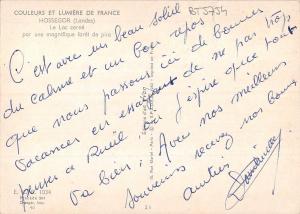 COULEURS ET LUMIÈRE DE FRANCE
HOSSEGOR (Landes)
Le Lac cerné
par une magnifique forêt de pins
BJ5754
C'est avec un beau soleil
du calme et un bon repos
que nous passons ici de bonnes
vacances en essayant de ne pas trop
penser à Rueil où j'espère que tout
va bien. Avec nos meilleurs
souvenirs recevez nos bons
amitiés
1034